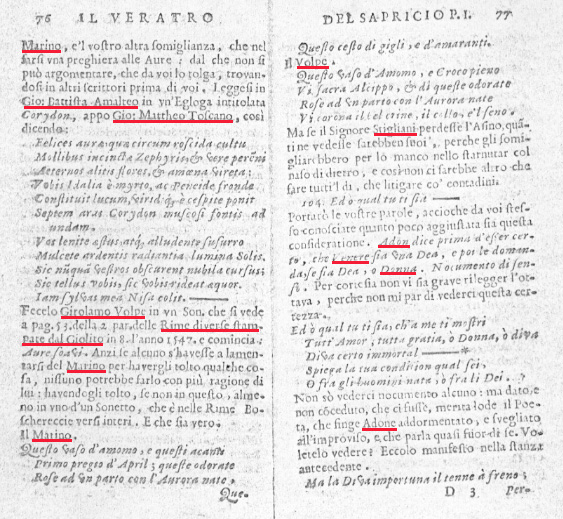 76 IL VERATRO
Marino, e'l vostro altra somiglianza, che nel
farsi una preghiera alle Aure: dal che non si
può argomentare, che da voi lo tolga, trovan-
dosi in altri scrittori prima di voi. Leggesi in
Gio: Battista Amalteo in un'Egloga intitolata
Corydon, appo Gio: Mattheo Toscano, così
dicendo:
Felices auræ, qua circum roscida cultu
Mollibus incincta Zephyris, & vere perẽni
Aeternos alitis flores, & amœna vireta;
Vobis Idalia è myrto, ac Peneide fronde
Constituit lucum, viridiq; è cespite ponit
Septem aras Corydon muscosi fontis ad
undam.
Vos lenite æstus, atq; alludente susurro
Mulcete ardentis radiantia lumina Solis.
Sic nũqua vestros obscurent nubila cursus;
Sic tellus vobis, sic vobis rideat æquor.
Iam sylvas mea Nisa colit.
Fecelo Girolamo Volpe in vn Son. che si vede
a pag. 53. della 2. par. delle Rime diverse stam-
pate dal Giolito in 8. l'anno 1547. e comincia:
Aure soavi. Anzi se alcuno s'havesse a lamen-
tarsi del Marino per havergli tolto qualche co-
sa, nissuno potrebbe farlo con più ragione di
lui: havendogli tolto, se non in questo, alme-
no in vno d'un Sonetto, che è nelle Rime Bo-
scherecce versi interi. E che sia vero:
Il Marino.
Questo vaso d'amomo, e questi acanti
Primo pregio d'April; queste odorate
Rose ad vn parto con l'Aurora nate,
Que-
DEL SAPRICIO P. I. 77
Questo cesto di gigli, e d'amaranti.
Il Volpe.
Questo vaso d'Amomo, e Croco pieno
Vi sacra Alcippo, & di queste odorate
Rose ad vn parto con l'Aurora nate
Vi corona il bel crine, il collo, e'l seno.
Ma se il Signore Stigliani perdesse l'Asino, quã-
ti ne vedesse sarebben suoi, perche gli somi-
gliarebbero per lo manco nello starnutar col
naso di dietro, e così non ci sarebbe altro che
fare tutti'l dì, che litigare co' contadini.
104. Ed o qual tu ti sia
Portarò le vostre parole, accioche da voi stes-
so conosciate quanto poco aggiustata sia questa
consideratione. Adon dice prima d'esser cer-
to, che Venere sia vna Dea, e poi le doman-
da, se sia Dea, o Donna. Nocumento di sen-
so. Per cortesia non vi sia grave rilegger l'ot-
tava, perche non mi par di vederci questa cer-
tezza.
Ed ò qual tu ti sia, ch'a me ti mostri
Tutt'Amor, tutta gratia, ò Donna, ò diva
Diva certo immortal
Spiega la tua condition qual sei,
O fra gli huomini nata, ò fra li Dei.
Non sò vederci nocumento alcuno: ma dato, e
non cõceduto, che ci fusse, merita lode il Poe-
ta, che finge Adone addormentato, e svegliato
all'improviso, e che parla quasi fuor di se. Vo-
letelo vedere? Eccolo manifesto nella stanza
antecedente.
Ma la Diva importuna il tenne à freno;
D 3 Per-